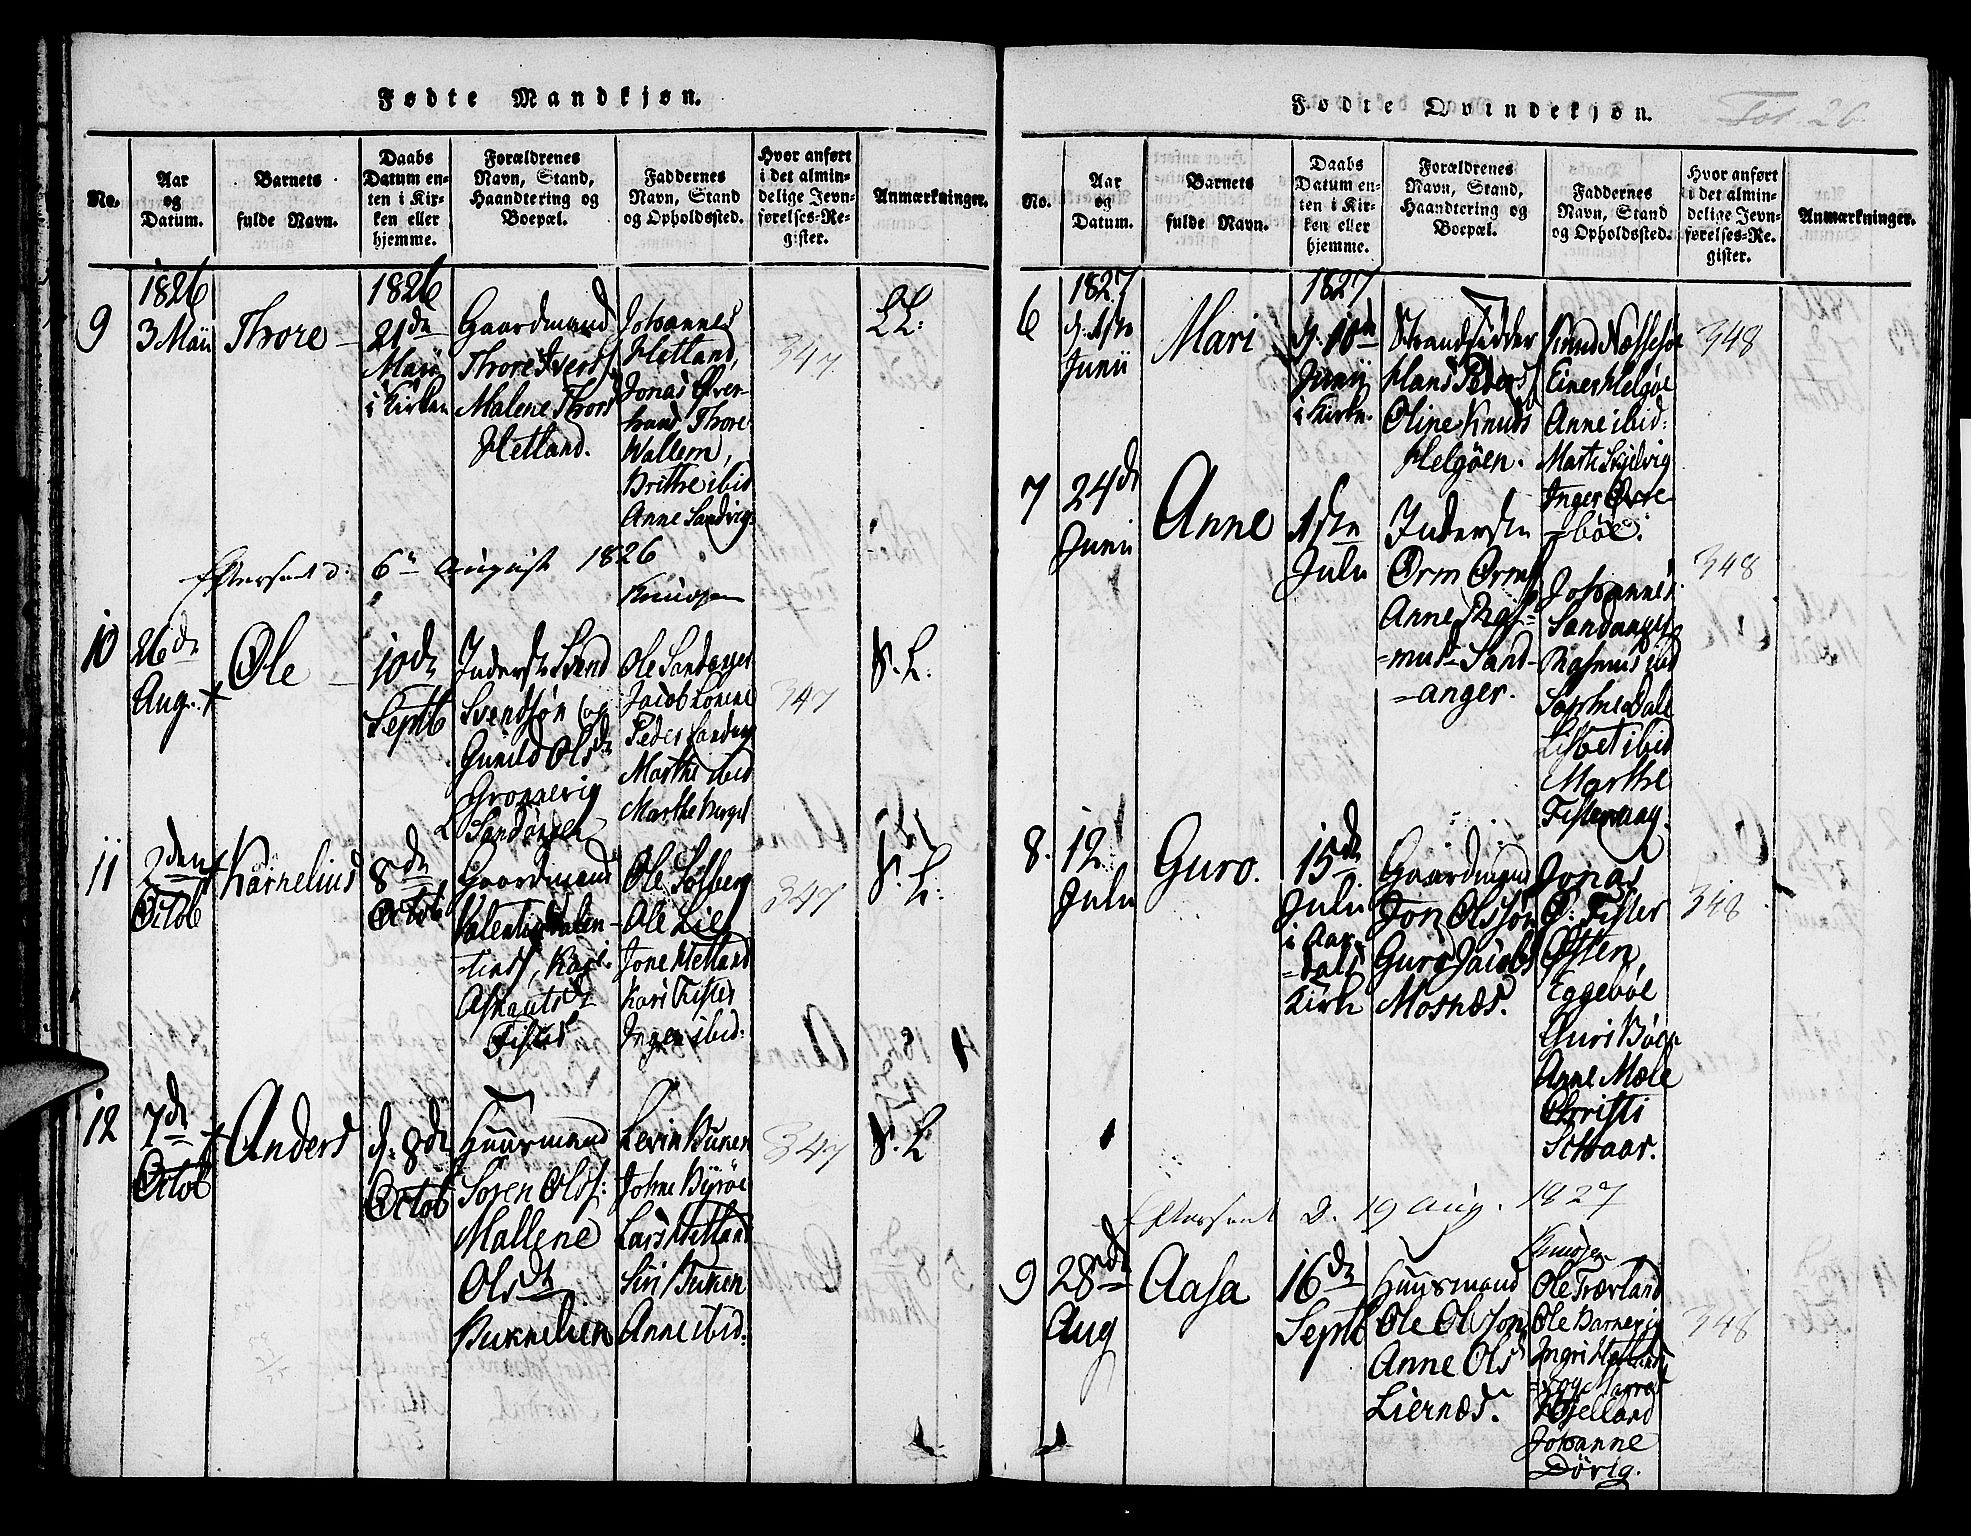 Fødte Mandkjøn.
No.
Aar
og
Datum.
Barnets
fulde Navn.
Daabs
Datum en-
ten i Kir-
ken eller
hjemme.
Forældrenes
Navn, Stand,
Haandtering og
Boepæl.
Faddernes
Navn, Stand
og Opholdssted.
Hvor anført
i det almin-
delige Jevn-
førelses-Re-
gister.
Anmærkninger.
9
1826
3 Maii
Thore
1826
21de
Maii
i Kirken
Gaardmand
Thore Iverss
Malene Thors
Hetland.
Johannes
Hetland,
Jonas Øver-
land Thore
Wallem,
Brithe ibid
Anne Sandvig
347
Efterseet d. 6te August 1826
Knudsen
10
26de
Aug.
Ole
10de
Septb
Inderste Svend
Svendsøn og
Gunild Olsdt
Gronnevig
Ole Sandanger
Jacob
Peder Sandang
Marthe ibid
Marthe
347
11
2den
Octob
Karnelius
8de
Octob
Gaardmand
Valentin Valen-
tinss, Kari
Asgautsdt
Fister
Ole Solberg
Ole Lie
Jone Hetland
Kari Fister
Inger ibid:
347
12
7de
Octob
Anders
d. 8de
Octob
Huusmand
Soren Olss:
Mallene
Olsdt
Buknelien
Levin Buken
Johne Byrøe
Lars Hetland
Siri Buken
Anne ibid:
347
Fødte Qvindekjøn.
Fol. 26.
No.
Aar
og
Datum.
Barnets
fulde Navn.
Daabs
Datum en-
ten i Kir-
ken eller
hjemme.
Forældrenes
Navn, Stand,
Haandtering og
Boepæl.
Faddernes
Navn, Stand
og Opholdssted.
Hvor anført
i det almin-
delige Jevn-
førelses-Re-
gister.
Anmærkninger.
6
1827
d. 1ste
Junii
Mari
1827
d. 10de
Junii
i Kirke.
Strandsidder
Hans Peders
Oline Knuds
Helgøen.
Knud Næssesøe
Einer Helgøe
Anne ibid:
Marte Skjelvig
Inger Øvre-
bøe.
348
7
24de
Junii
Anne
1ste
Julii
Inderste
Orm Orms
Anne Ras-
mus Sand-
anger.
Johannes
Sandanger
Rasmus ibid
Sophie Dale
Lisbet ibid
Marthe
Fistervaag.
348
8.
12
Julii
Guro.
15de
Julii
i Aar-
dals
Kirke
Gaardmand
Jon Olssøn
Guro Jacobs
Mosnæs.
Jonas
Ø. Fister
Østen
Eggebøe
Guri Bøe
Anne Mæle
Christi
Schaar.
348
Efterseet d. 19 Aug. 1827
Knudsen
9
28de
Aug
Aasa
16de
Septb
Huusmand
Ole Olsson
Anne Ols
Liernæs.
Ole Tverland
Ole Barnevig
Ingri
Hielland
Johanne
Dørig.
348